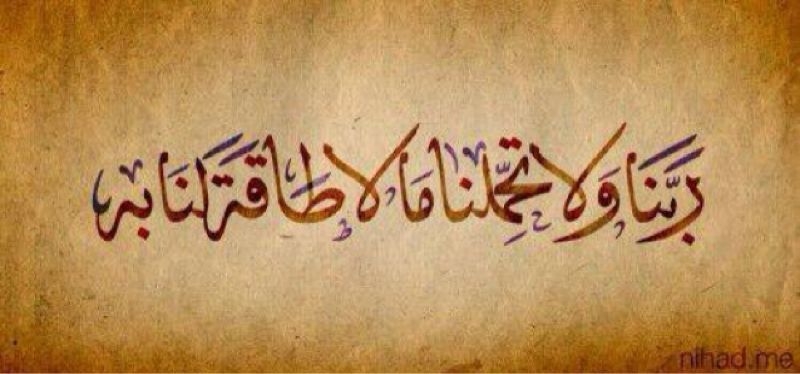 ربنا ولا تحملنا ما لا طاقة لنا به
nihad.me